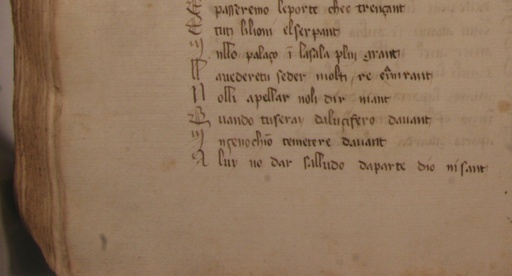 E passeremo leporte chee trençant
E tuti lilioni elserpant
I nllo palaço ī lasala plu grant
P auedereti seder molti re
N olli apellar noli dir niant
Q uando tuseray dalucifero dauant
I ngenochiō temetere dauant
A luy no dar salludo daparte dio ni sant